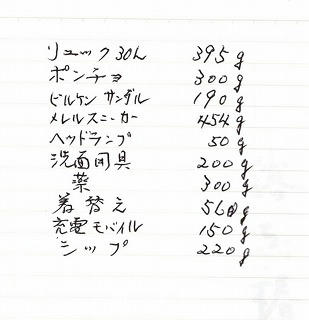 リュック30L 395g
ポンチョ 300g
ビルケンサンダル 190g
メレルスニーカー 454g
ヘッドランプ 50g
洗面用具 200g
薬 300g
着替え 560g
充電モバイル 150g
シップ 220g